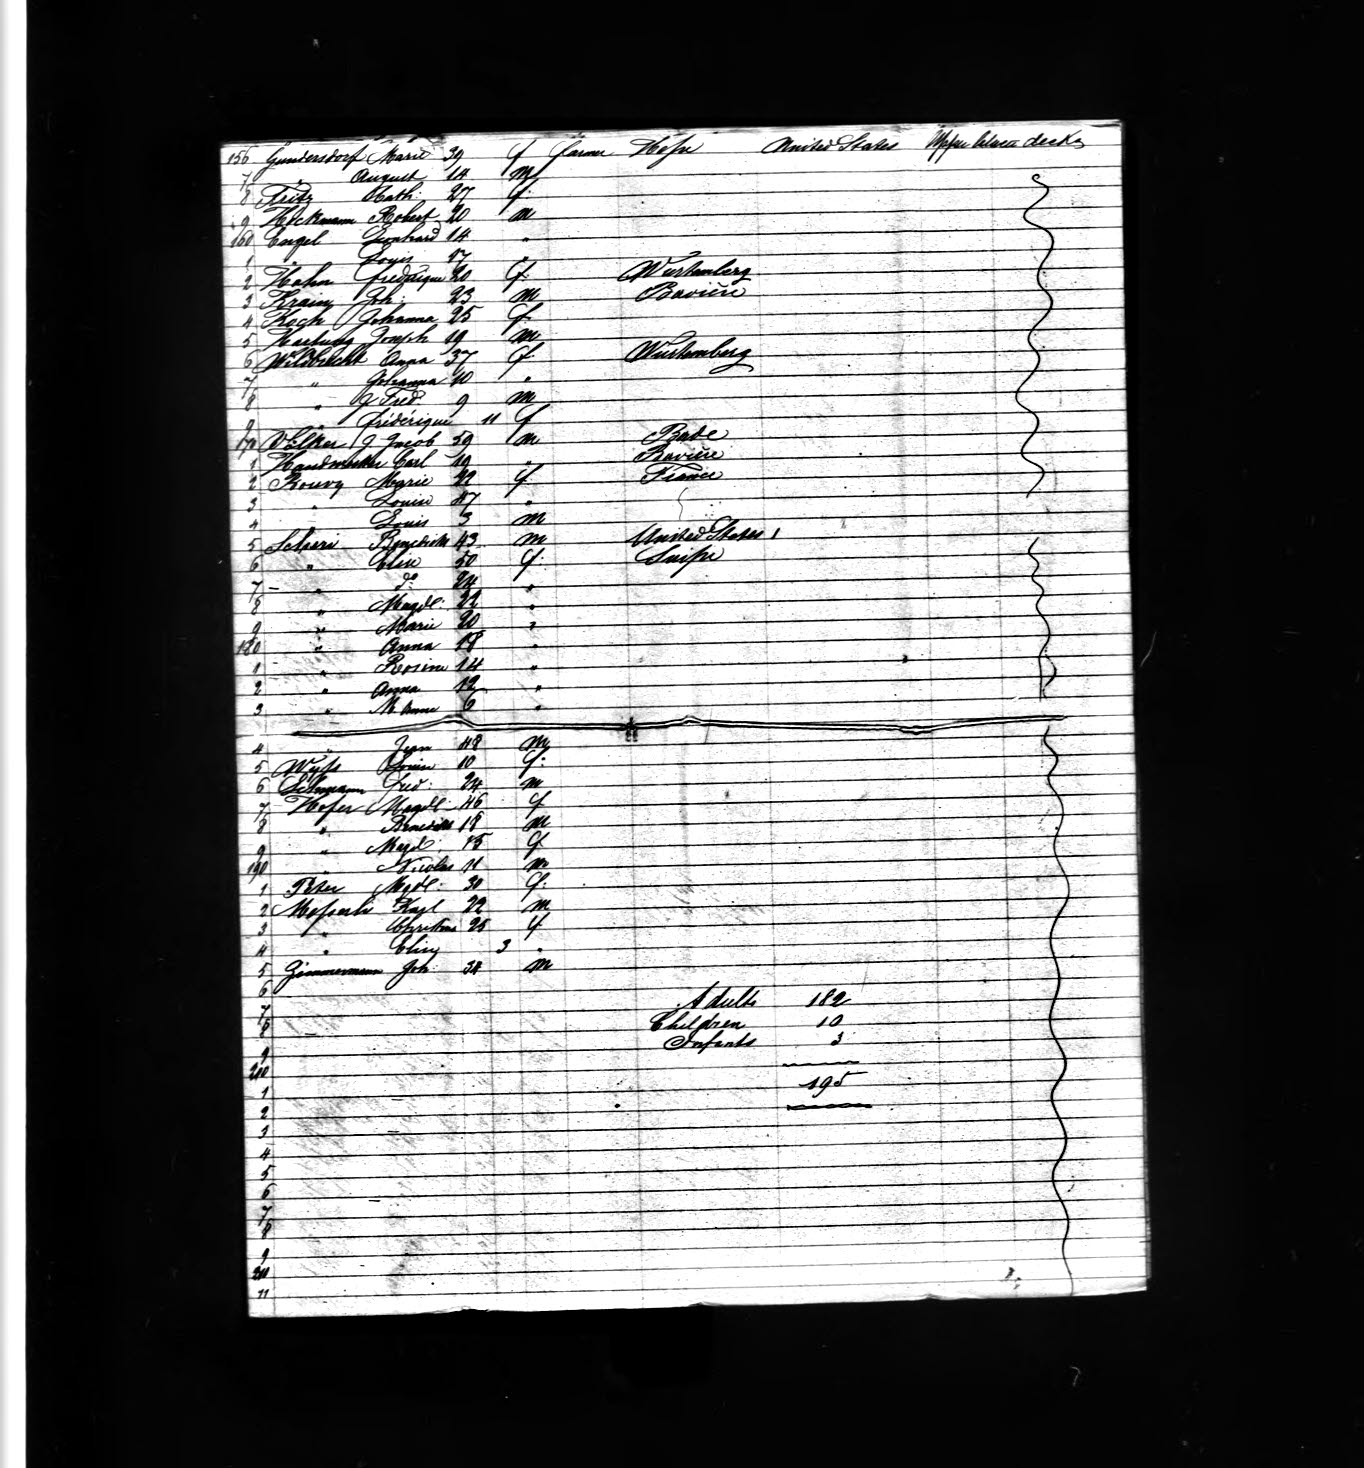 156 Gundersdorf Marie 39 f farmer Hesse United States Upper betwen decks
7 " August 14 m
8 Fritz Cath. 27 f
9 Heckmann Robert 20 m
160 Engel Leonhard 14 "
1 " Louis 17 "
2 Hahn frederique 20 f Wurtemberg
3 Krainz Joh. 23 m Bavière
4 Koch Johanna 25 f
5 Hartung Joseph 19 m
6 Wildbrecht Anna 37 f Wurtemberg
7 " Johanna 10 "
8 " Fred. 9 m
9 " frédérique 11 f
170 Völker J. Jacob 59 m Bade
1 Carl 19 " Bavière
2 Bouvy Marie 22 f France
3 " Louise 47 "
4 " Louis 3 m
5 Scheeri Benedicht 43 m United States
6 " Elise 50 f. Suisse
7 " do. 24 "
8 " Magdl. 22 "
9 " Marie 20 "
180 " Anna 18 "
1 " Rosine 14 "
2 " Anna 12 "
3 " M. Anna 6 "
4 " Jean 48 m
5 Wyss Louise 10 f.
6 Lehmann Fred. 24 m
7 Hofer Magdl. 46 f
8 " Benedict 18 m
9 " Magd. 15 f
190 " Nicolas 11 m
1 Peter Magdl. 30 f.
2 Mosserli Karl 22 m
3 " Christina 25 f
4 " Elisa 3 "
5 Zimmermann Joh. 34 m
6
7 Adults 182
8 Children 10
9 Infants 3
200
1 195
2
3
4
5
6
7
8
9
210
11